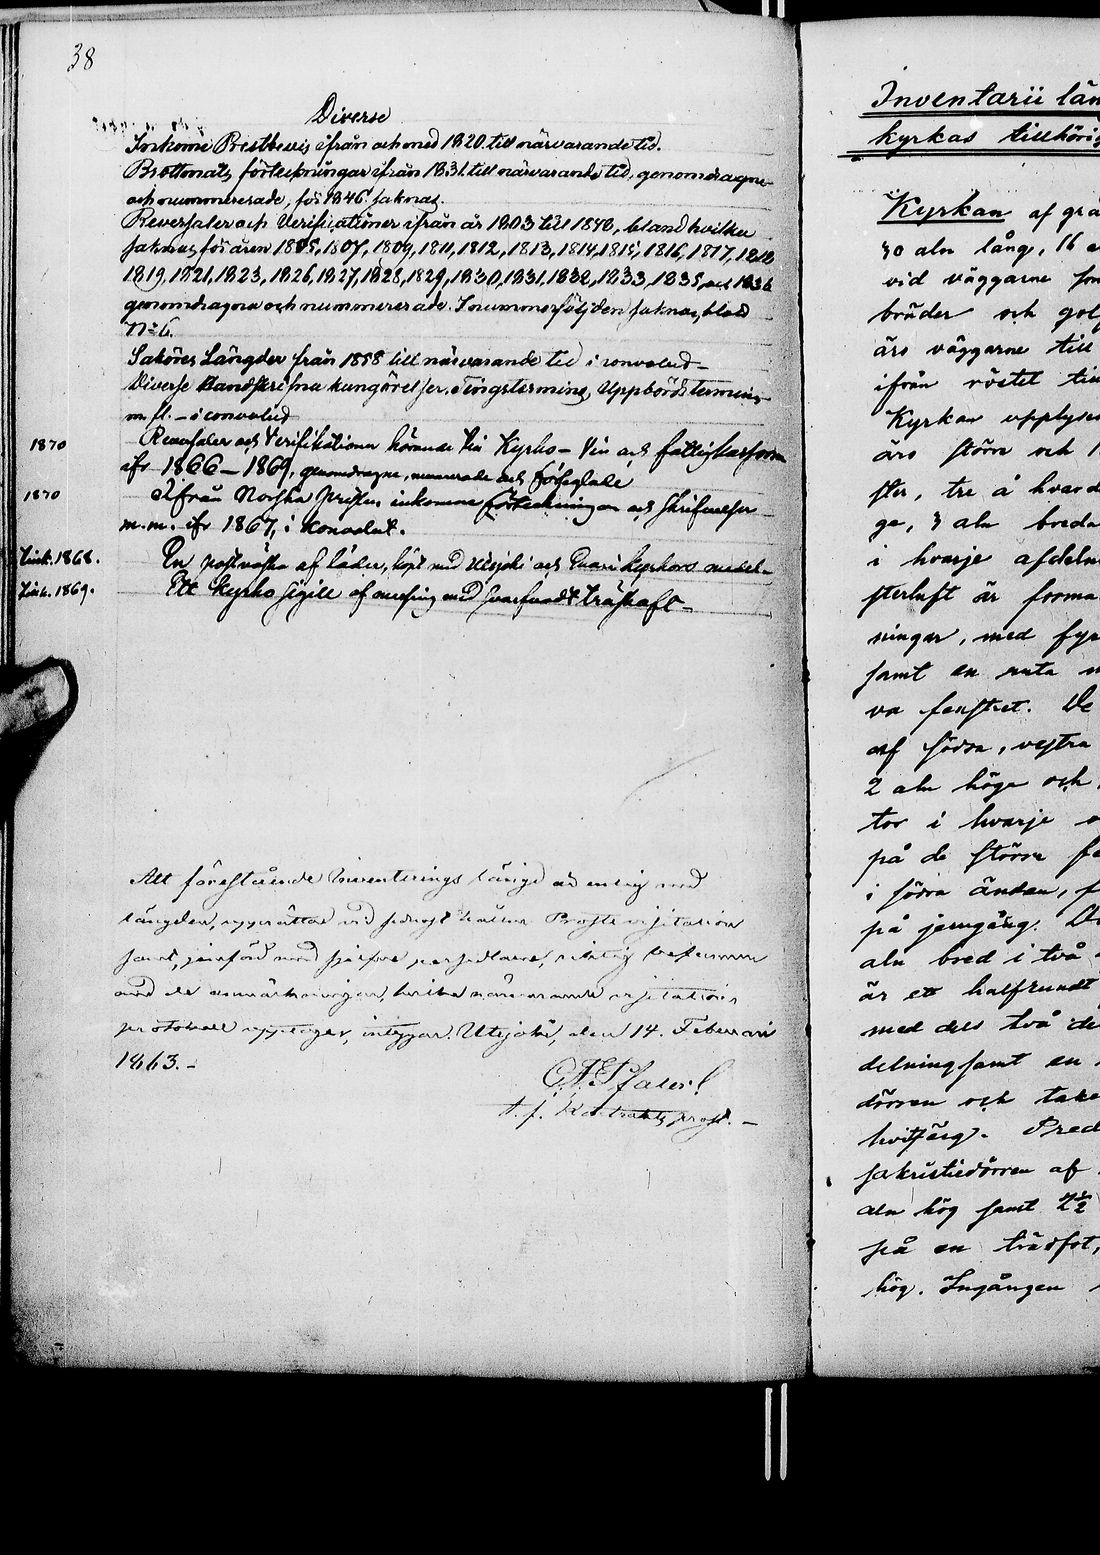 38
Diverse
Inkomne Prestbevis ifrån och med 1820 till närvarande tid.
Brottmåls förteckningar ifrån 1831 till närvarande tid, genomdragne
och nummererade, för 1846 saknas.
Reversaler och Verificationer ifrån år 1803 till 1848, bland hvilka
saknas för åren 1805, 1807, 1809, 1811, 1812, 1813, 1814, 1815, 1816, 1817, 1818
1819, 1821, 1823, 1826, 1827, 1828, 1829, 1830, 1831, 1832, 1833, 1835, och 1836
genomdragna och nummererade. I nummerföljden saknas, blad
N:o 6.
Saköres Längder från 1858 till närvarande tid i convolud
Diverse Handskrifna kungörelser, Tingstermins, Uppbörds termins
m fl. i convolud
1870 Reversaler och Verifikationer hörande till Kyrko- Vin och fattigkassorna
ifr 1866–1869, genomdragne, numrerade och förseglade
1870 Ifrån Norska prester inkomne förteckningar och skrifvelser
m.m. ifr 1867, i konvolut.
Link. 1868. En postväska af läder, köpt med Utsjoki och Enare kyrkors medel
Link. 1869. Ett Kyrko sigill af messing med svarfvadt träskaft
Att föreståående Inventerings längd är enlig med
längden, upprättad vid sednast hållna Proste visitation
samt, jemförd med sjelfva persedlarne, riktig befunnen
med de anmärkningar, hvilka närvarande visitations
protokoll upptager, intygar. Utsjoki, den 14. Februari
1863.
t. f. Kontrakts prost.
Inventarii län
kyrkas tillhöri
Kyrkan af grå
30 aln lång, 16 a
vid väggarne
bräder och gol
äro väggarne till
ifrån röstet
Kyrkan upplyses
äro större och
ster, tre å hvard
ge, 3 aln breda
i hvarje afdeln
sterluft är forma
ningar, med fyr
samt en ruta
va fenstret. De
af södra, vestra
2 aln höga och
tor i hvarje
på de större fe
i södra ändan, f
på jerngång. D
aln bred i två
är ett halfrundt
med dels två de
delning samt en
dörren och take
hvitfärg. Pred
sakristiedörren af
aln hög samt 2½
på en trädfot,
hög. Ingången